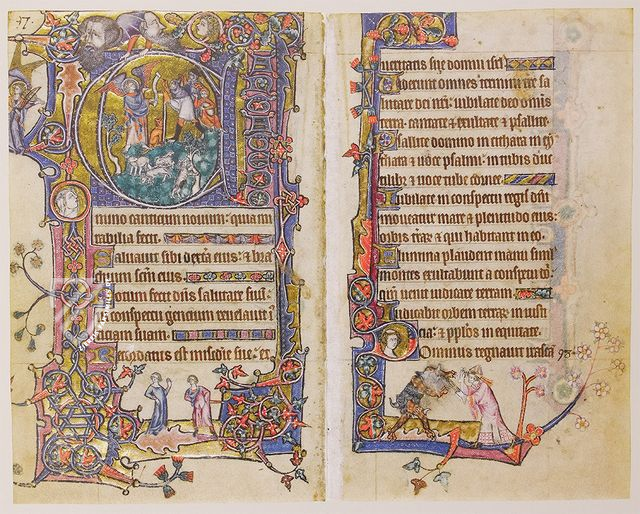 17.
mino canticum nouum: quia mi
rabilia fecit.
Saluauit sibi dextra eius: & bra
chium scm eius.
Notum fecit dns salutare suu:
in conspectu gencium reuelauit i
usticiam suam.
Recordatus est misedie sue: et
ueritatis sue domui isrl
Viderunt omnes termini terre sa
lutare dei nri: iubilate deo omis
terra: cantate & exultate & psallite.
Psallite domino in cithara in ci
thara & uoce psalmi: in tubis duc
tilibz & uoce tube cornee.
Iubilate in conspectu regis dni
moueatur mare & plenitudo eius:
orbis trar & qui habitant in eo.
Flumina plaudent manu simul
montes exultabunt a conspectu dni:
qm uenit iudicare terram
Iudicabit orbem terrar in iusti
cia: & pplos in equitate.
Dominus regnauit irascant 98